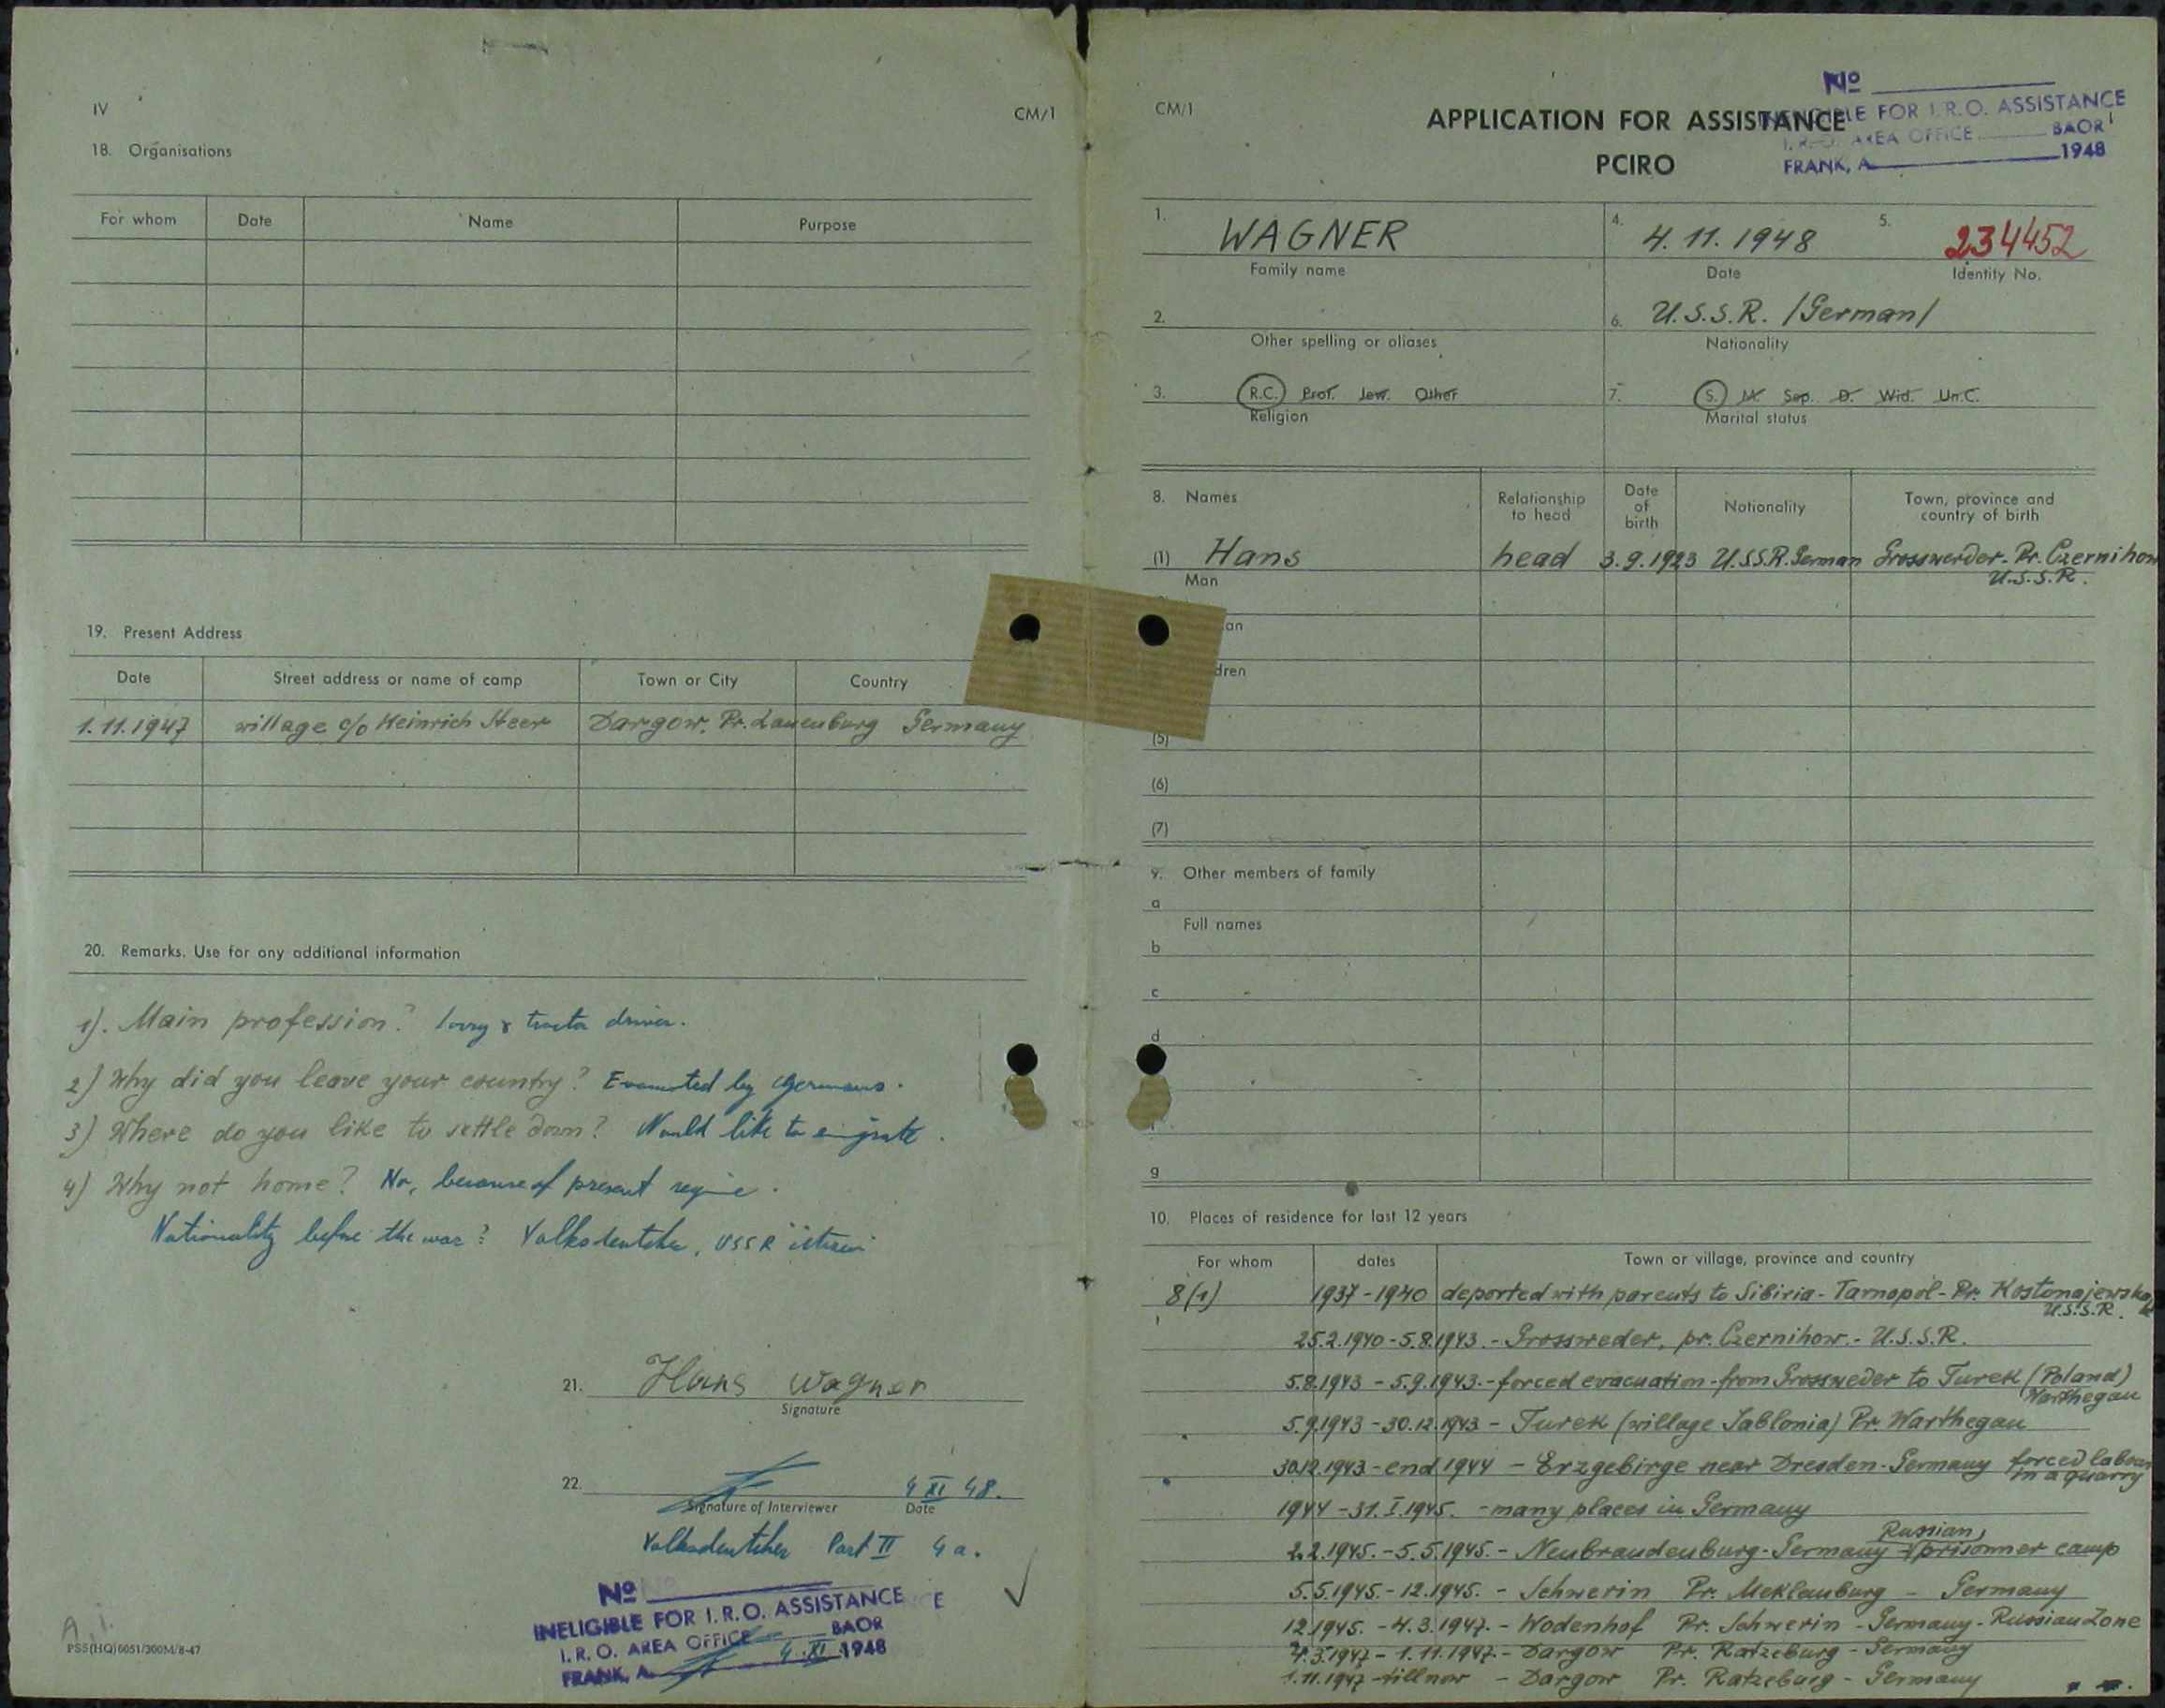 IV
CM/1
18. Organisations
For whom Date Name Purpose
19. Present Address
Date Street address or name of camp Town or City Country
1.11.1947 village c/o Heinrich Steer Dargow. Pr. Lauenburg Germany
20. Remarks. Use for any additional information
1). Main profession? lorry & tractor driver.
2) Why did you leave your country? Evacuated by Germans.
3) Where do you like to settle down? Would like to emigrate.
4) Why not home? No, because of present regime.
Nationality before the war? Volksdeutscher, USSR
21. Hans Wagner
Signature
22. 4 XI 48.
Signature of Interviewer Date
Volksdeutscher Part II 4a.
No
INELIGIBLE FOR I.R.O. ASSISTANCE
I.R.O. AREA OFFICE BAOR
FRANK, A. 4.XI 1948
PSS(HQ)6051/300M/8-47
CM/1
APPLICATION FOR ASSISTANCE
PCIRO
No
INELIGIBLE FOR I.R.O. ASSISTANCE
I.R.O. AREA OFFICE BAOR
FRANK, A 1948
1. WAGNER 4. 4.11.1948 5. 234452
Family name Date Identity No.
2. 6. U.S.S.R. /German/
Other spelling or aliases Nationality
3. R.C. Prot. Jew. Other 7. S. M. Sep. D. Wid. Un.C.
Religion Marital status
8. Names Relationship to head Date of birth Nationality Town, province and country of birth
(1) Hans head 3.9.1923 U.S.S.R. German Grosswerder-Pr. Czernihow
Man U.S.S.R.
an
dren
(5)
(6)
(7)
9. Other members of family
a
Full names
b
c
d
g
10. Places of residence for last 12 years
For whom dates Town or village, province and country
8(1) 1937-1940 deported with parents to Sibiria-Tarnopol-Pr. Kostonajewska
U.S.S.R.
25.2.1940-5.8.1943.-Grossweder, pr. Czernihow.-U.S.S.R.
5.8.1943-5.9.1943.-forced evacuation-from Grossweder to Turek (Poland)
Warthegau
5.9.1943-30.12.1943-Turek (village Jablonia) Pr. Warthegau
30.12.1943-end 1944-Erzgebirge near Dresden-Germany forced labour
in a quarry
1944-31.I.1945.-many places in Germany
2.2.1945.-5.5.1945.-Neubrandenburg-Germany Russian prisonner camp
5.5.1945.-12.1945.-Schwerin Pr. Meklenburg-Germany
12.1945.-4.3.1947.-Wodenhof Pr. Schwerin-Germany-Russian Zone
4.3.1947-1.11.1947.-Dargow Pr. Ratzeburg-Germany
1.11.1947-till now-Dargow Pr. Ratzeburg-Germany